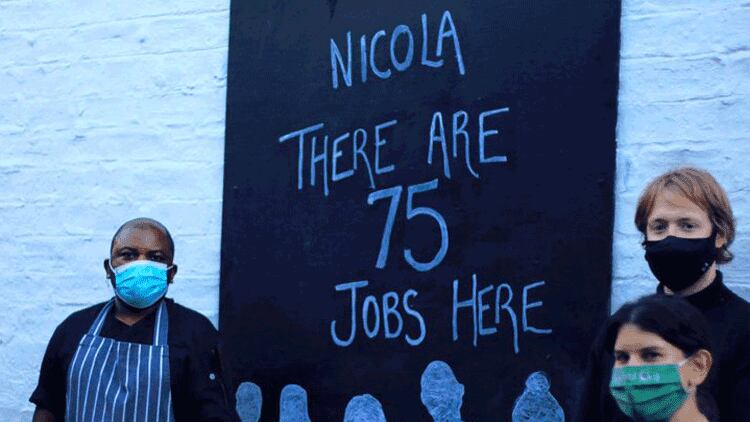 NICOLA
THERE ARE
75
JOBS HERE